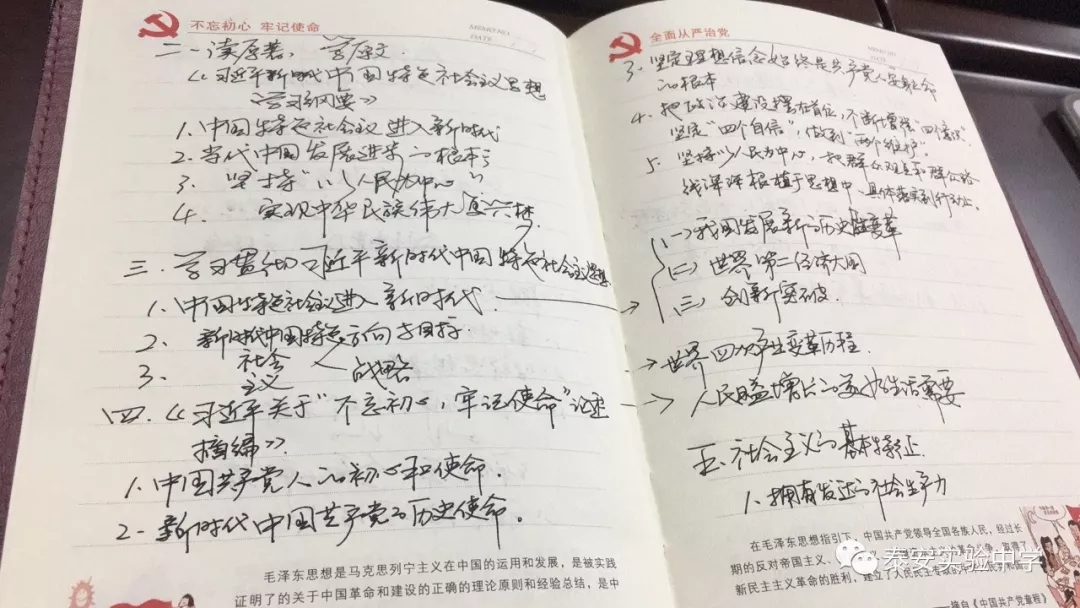 不忘初心 牢记使命
MEMO NO.
DATE
二一读原著，学原文.
《习近平新时代中国特色社会主义思想
学习纲要》
1.中国特色社会主义进入新时代
2.当代中国发展进步的根本
3. "坚持"以人民为中心"
4. 实现中华民族伟大复兴梦.
三.学习贯彻习近平新时代中国特色社会主义思想
1.中国特色社会主义进入新时代.
2. 新时代中国特色 方向与目标
社会
3. 主义 战略
四.《习近平关于"不忘初心，牢记使命"论述
摘编》.
1.中国共产党人的初心和使命.
2-新时代中国共产党的历史使命。
毛泽东思想是马克思列宁主义在中国的运用和发展，是被实践
证明了的关于中国革命和建设的正确的理论原则和经验总结，是中
全面从严治党
MEMO NO.
DATE
3.坚定理想信念始终是共产党人安身立命
的根本
4.把政治建设摆在首位,不断增强"四个意识"
坚定"四个自信",做到"两个维护".
5.坚持以人民为中心,把群众观点和群众路
线深深根植于思想中、具体落实到行动上.
(一)我国发展新的历史性变革
(二)世界第二经济大国
(三)创新突破.
世界四为产生变革历程.
人民日益增长的美好生活需要
五.社会主义的基本特征.
1.拥有发达的社会生产力
在毛泽东思想指引下，中国共产党领导全国各族人民，经过长
期的反对帝国主义、
新民主主义革命的胜利，建立了人民民主专政的
摘自《中国共产党章程》
泰安实验中学